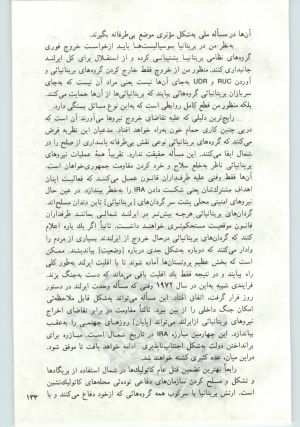 آن‌ها در مساله ملی به‌شکل مؤثری موضع بی‌طرفانه بگیرند.
به‌نظر من در بریتانیا سوسیالیست‌ها باید ازخواست خروج فوری
گروه‌های نظامی بریتانیا پشتیبانی کرده و از استقلال برای کل ایرلند
جانبداری کنند. منظور من از خروج فقط خارج کردن گروه‌های بریتانیائی و
آوردن RUC و UDR به‌جای آن‌ها نیست یعنی مراد آن نیست که به‌جای
سربازان بریتانیائی گروه‌هائی بیایند که بریتانیائی‌ها از آن‌ها حمایت می‌کنند.
بلکه منظور من قطع کامل روابطی است که به‌این نوع مسائل بستگی دارد.
رایج‌ترین دلیلی که علیه تقاضای خروج نیروها می‌آورند آن است که
درپی چنین کاری حمام خون به‌راه خواهد افتاد. مدعیان این نظریه فرض
می‌کنند که گروه‌های بریتانیائی نوعی نقش بی‌طرفانه پاسداری از صلح را در
شمال ایفا می‌کنند. این مساله حقیقت ندارد. تقریباً همهٔ عملیات نیروهای
بریتانیائی ناظر به‌خلع سلاح و خرد کردن مقاومت جمهوری‌خواهان است.
آن‌ها فقط وقتی علیه طرفداران قانون عمل می‌کنند که فعالیت اینان
اهداف مشترکشان یعنی شکست دادن IRA را به‌خطر بیندازد. در عین حال
نیروهای امنیتی محلی پشت سر گردان‌های [بریتانیائی] تابن دندان مسلح‌اند.
گردان‌های بریتانیائی هرچه بیش‌تر در ایرلند شمالی بمانند طرفداران
قانون موقعیت مستحکم‌تری خواهند داشت. ثانیاً اگر یک باره اعلام
کنند که گردان‌های بریتانیائی درحال خروج از ایرلندند بسیاری از مردم را
وادار می‌کنند که دوباره به‌شکل جدی درباره [وضعیت] بیاندیشند. ممکن
است که بخش عظیم پروتستان‌ها آماده شوند تا با اقلیت ایرلند به‌طور کلی
راه بیایند و در نتیجه فقط یک اقلیت باقی می‌ماند که دست به‌جنگ بزند.
فرایندی شبیه به‌این در سال ۱۹۷۲ وقتی که مسالهٔ وحدت ایرلند در دستور
روز قرار گرفت، اتفاق افتاد. این مساله می‌تواند به‌شکل قابل ملاحظه‌ئی
امکان جنگ داخلی را از بین ببرد. ثالثاً مقاومت در برابر تقاضای اخراج
نیروهای بریتانیائی ازایرلند می‌تواند [پایان] روزهای جهنمی را به‌عقب
بیاندازد. این چهارمین مبارزه IRA در تاریخ شمال است. مبارزه برای
برانداختن دولت به‌شکل اجتناب‌ناپذیری ادامه خواهد یافت تا موفق شود.
دراین میان، عده کثیری کشته خواهند شد.
رابعاً بهترین تضمین قتل عام کاتولیک‌ها در شمال استفاده از بریگادها
و تشکل و مسلح کردن سازمان‌های دفاعی توده‌ئی محله‌های کاتولیک‌نشین
است. ارتش بریتانیا با سرکوب همه گروه‌هائی که ازخود دفاع می‌کنند و با
۱۳۳